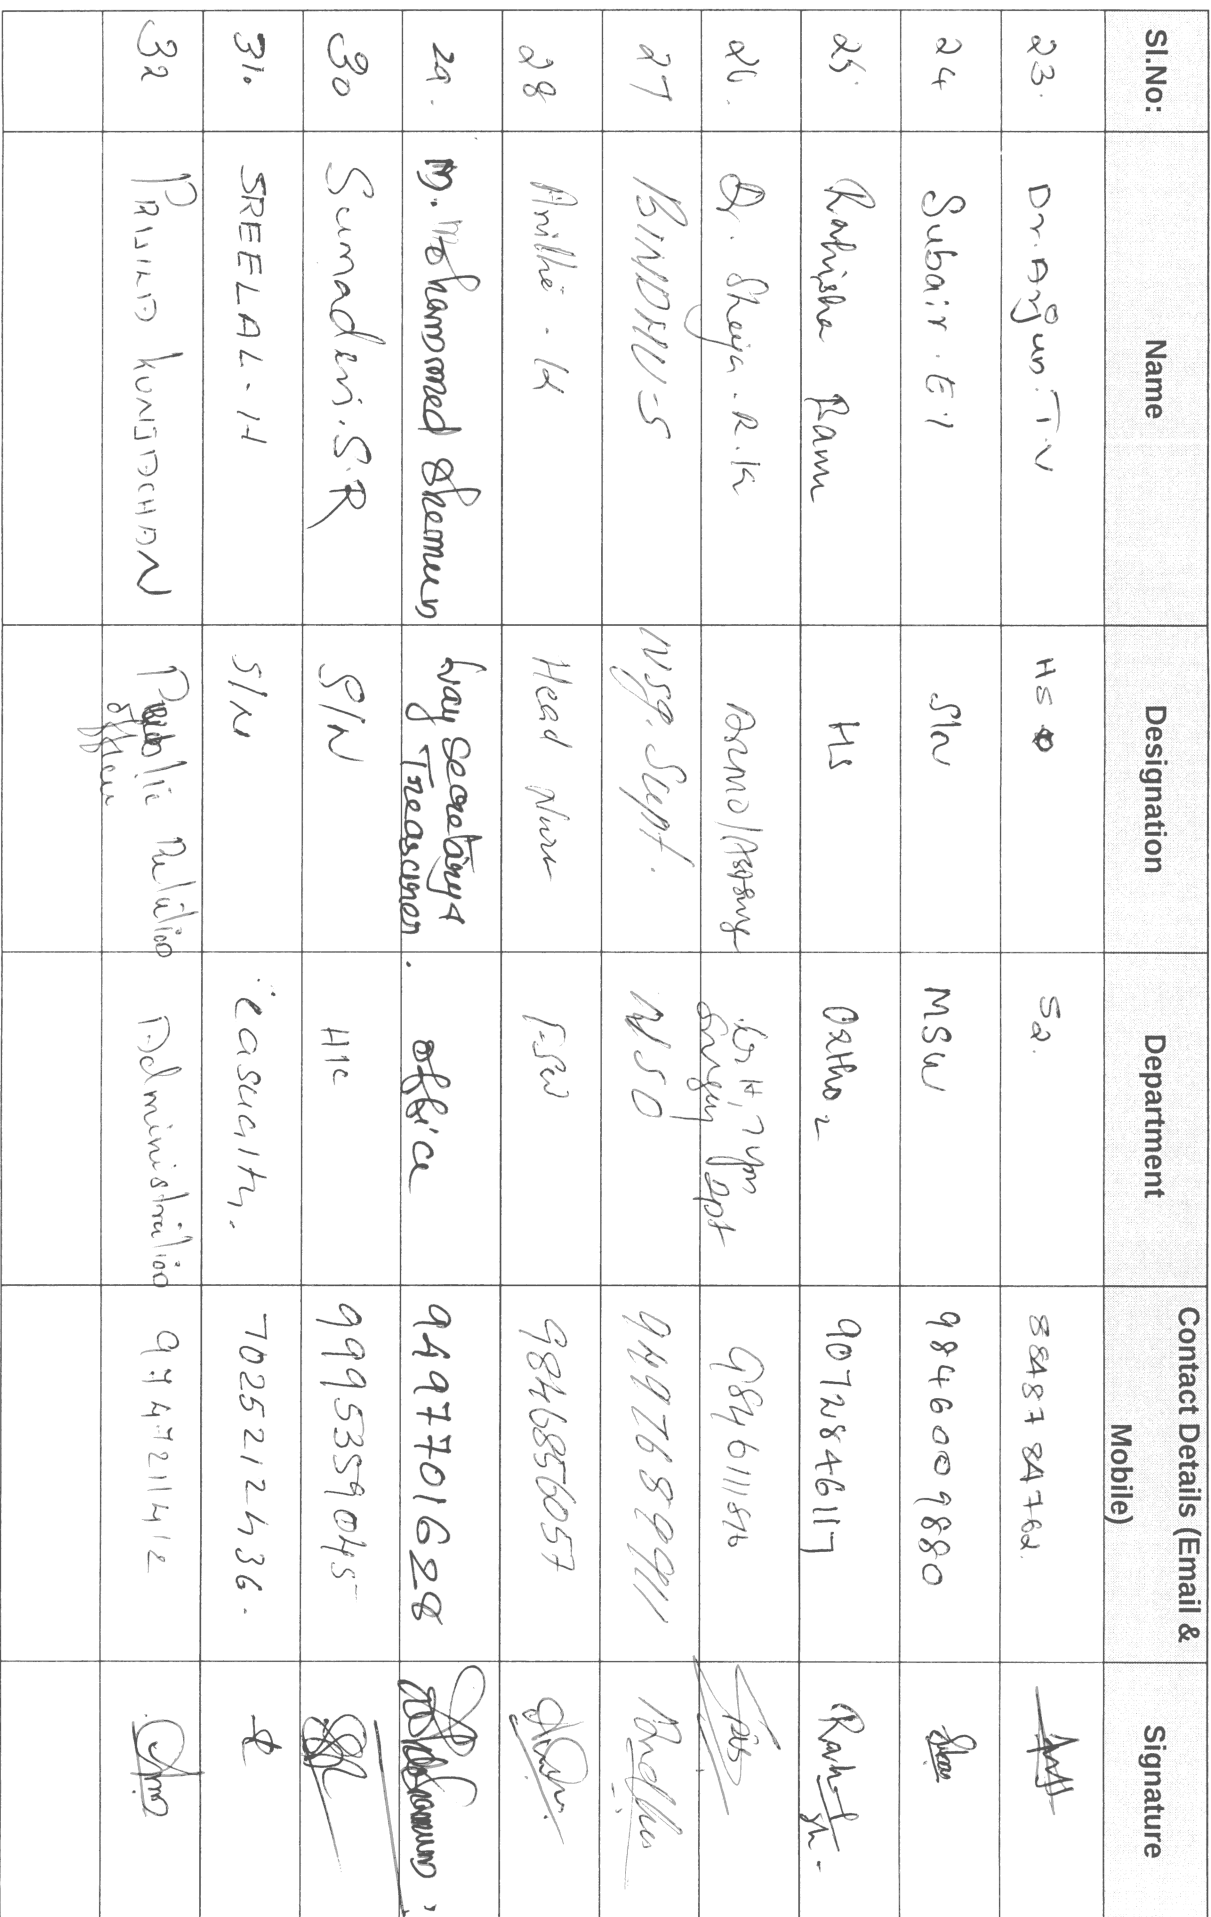 Sl.No: Name Designation Department Contact Details (Email & Mobile) Signature
23. Dr. Arjun. T V HS S2. 8848784762.
24 Subair. E Y S/N MSW 9846009880
25. Rahisha Ramu HS Ortho 2 9072846117
26. Dr. Sheeja. R. K ARMO/ Surgery Dept 9846111876
27 BINDHU-S Nsg. Supt. NSO 9497689911
28 Anitha - K Head Nurse FSW 9846856057
29. M. Mohammed Shemeem Lay Secretary & Treasurer office 9497701628
30 Sumadevi. S. R S/N HIC 9995359045
31. SREELAL - H S/N casualty. 7025212436.
32 PRAVIND KUNJACHAN Public Relation officer Administration 9747211412